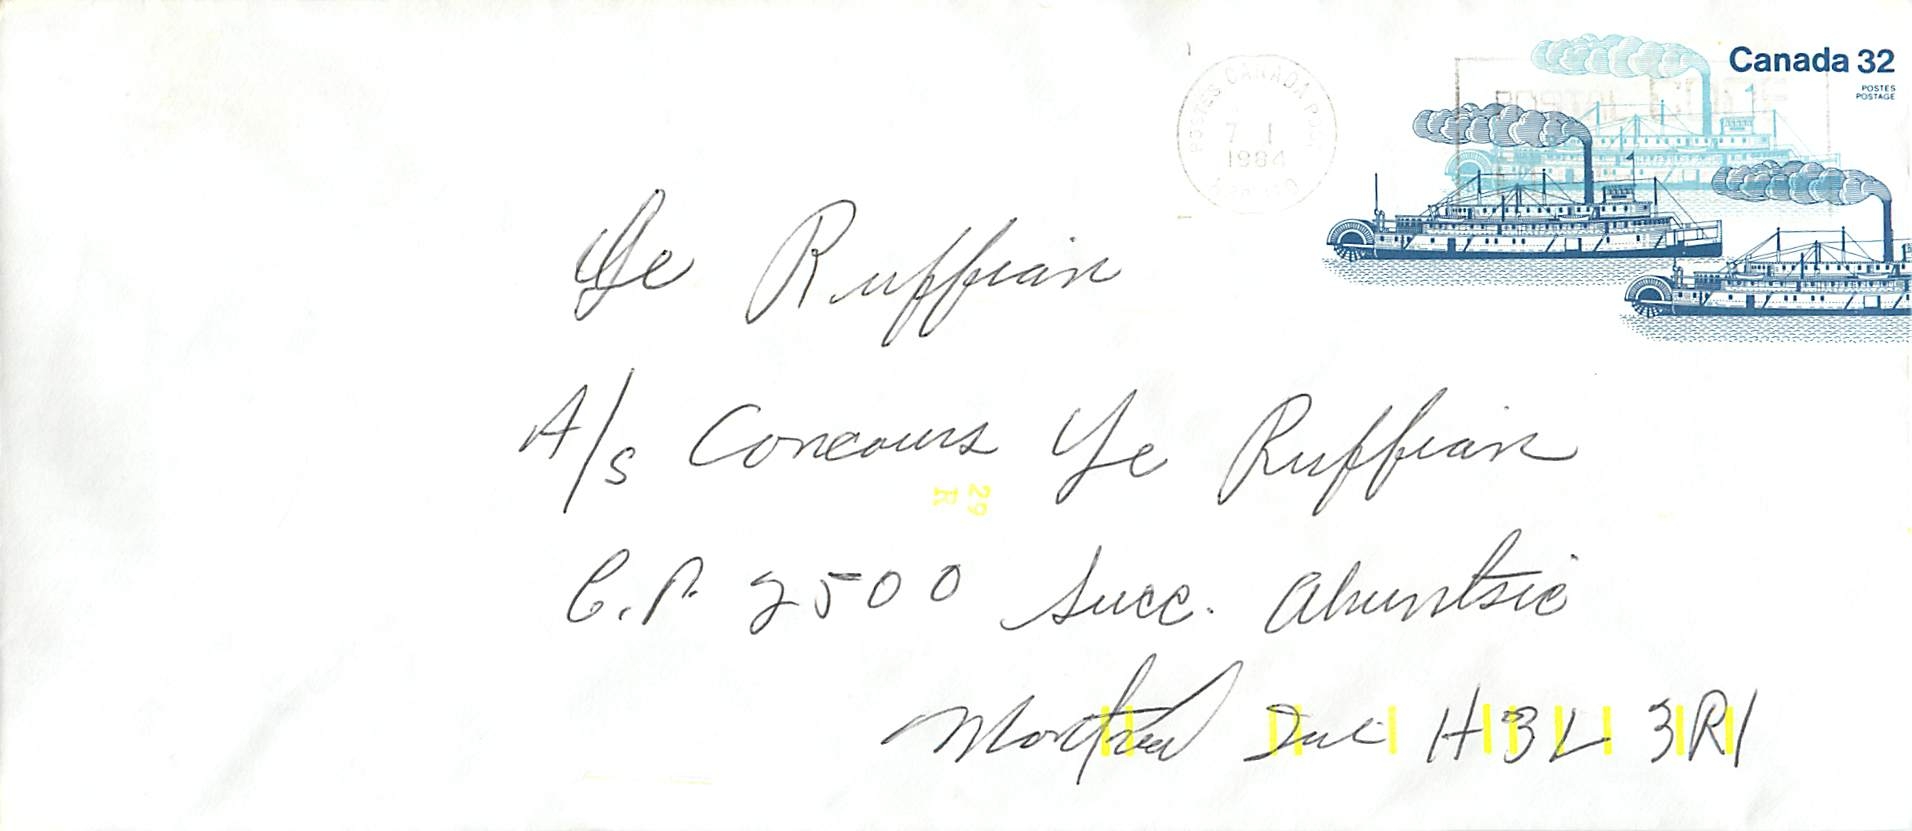 Canada 32
POSTES
POSTAGE
POSTES CANADA POST
7 I
1984
Ye Ruffian
A/s Concours Ye Ruffian
29
H
C.P. 2500 Succ. Ahuntsic
Montreal Que H3L 3R1